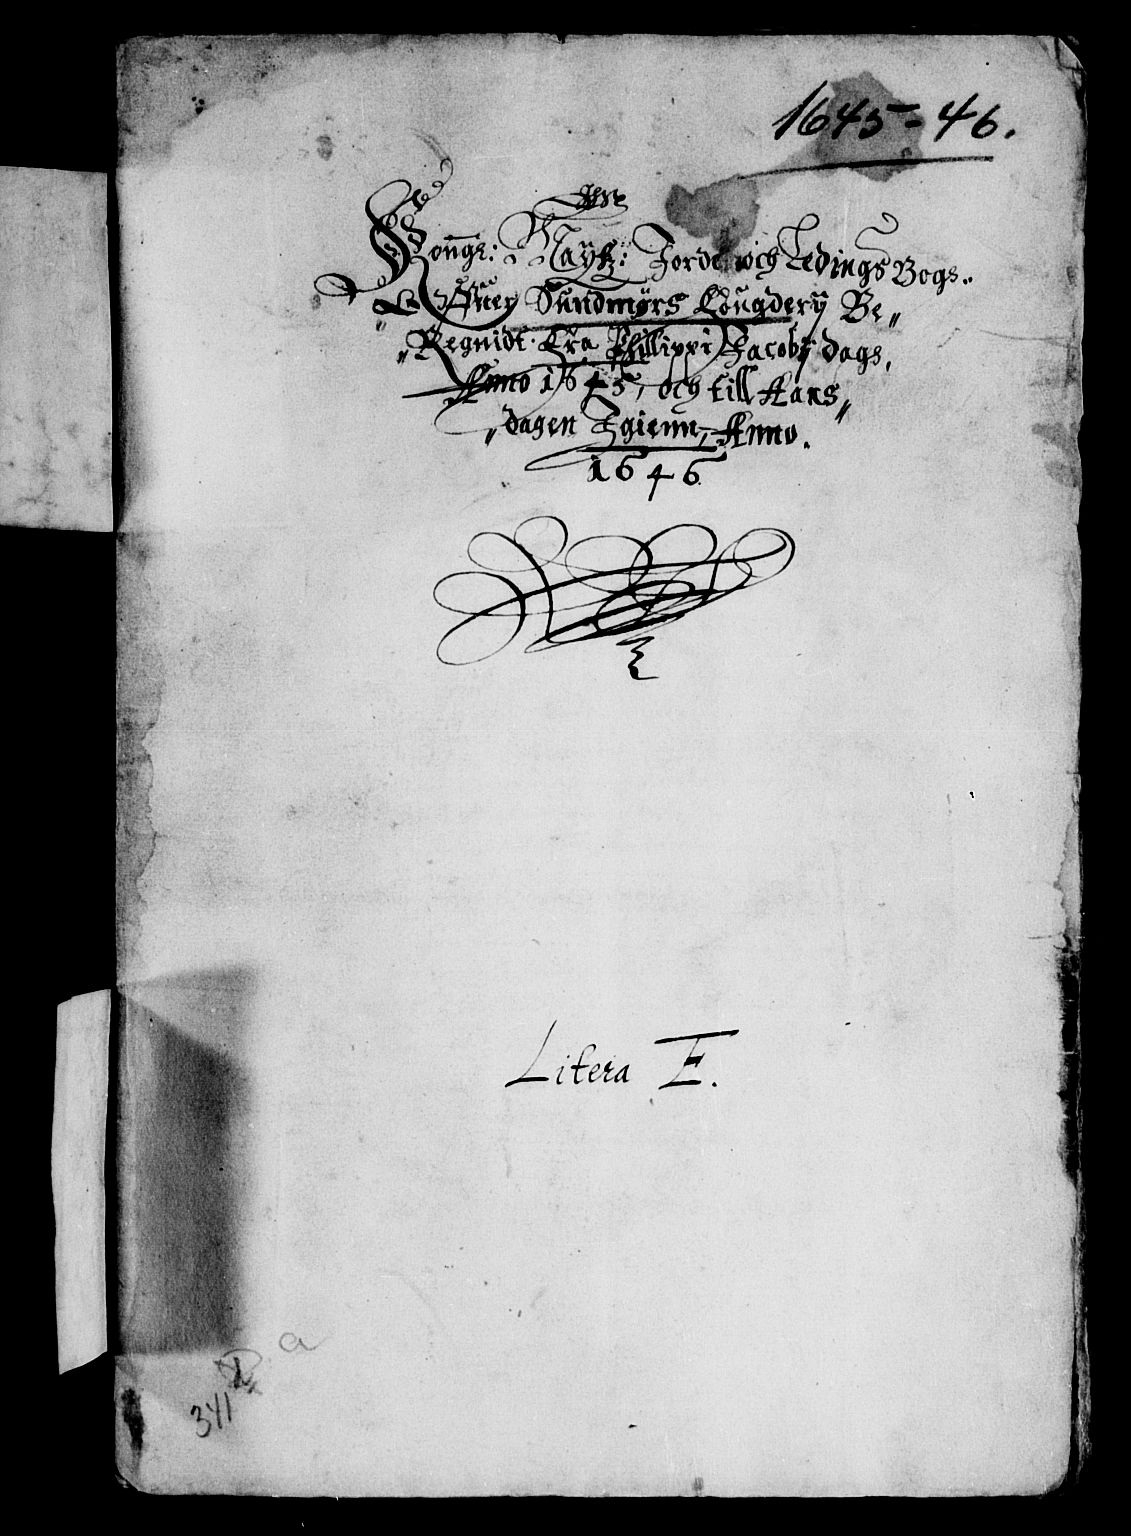 1645-46.
Kongs: Maytz: Jorde och Ledings Bogs..
Offuer Sundmørs Fougderij Be„
„Regnidt Fra Phillippi Jacobj dags,
Anno 1645, och till Aars„
„dagen Igienn, Anno.
1646
Litera E.
a
341